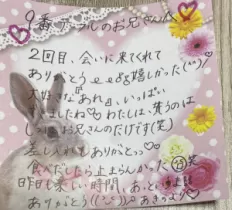 9番テーブルのお兄さんへ
2回目、会いに来てくれて
ありがとう 嬉しかった
大好きなあれ、いっぱい
しましたね わたしは、笑うのは
お兄さんのだけです(笑)
差し入れもありがとっ
食べだしたら止まらんがっ 笑
昨日も楽しい時間、あっとい
ありがとう あきのより